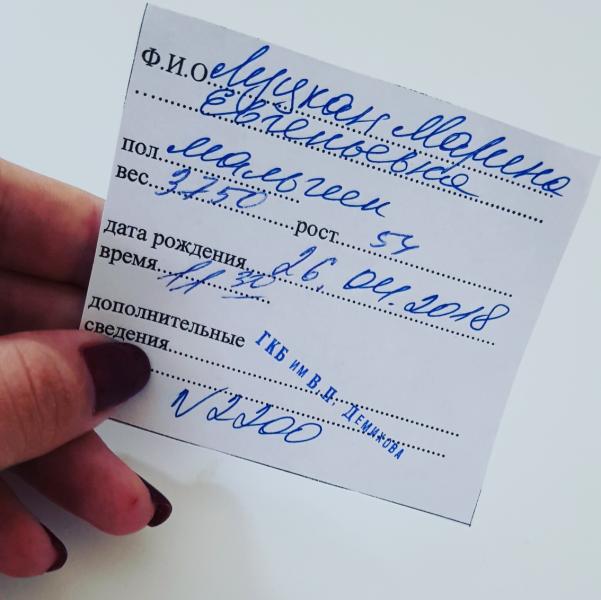 Ф.И.О. Луцкан Марина
Евгеньевна
пол мальчик
вес 3750 рост 54
дата рождения 26.04.2018
время 11 30
дополнительные
сведения
ГКБ им В.П. Демихова
N2200